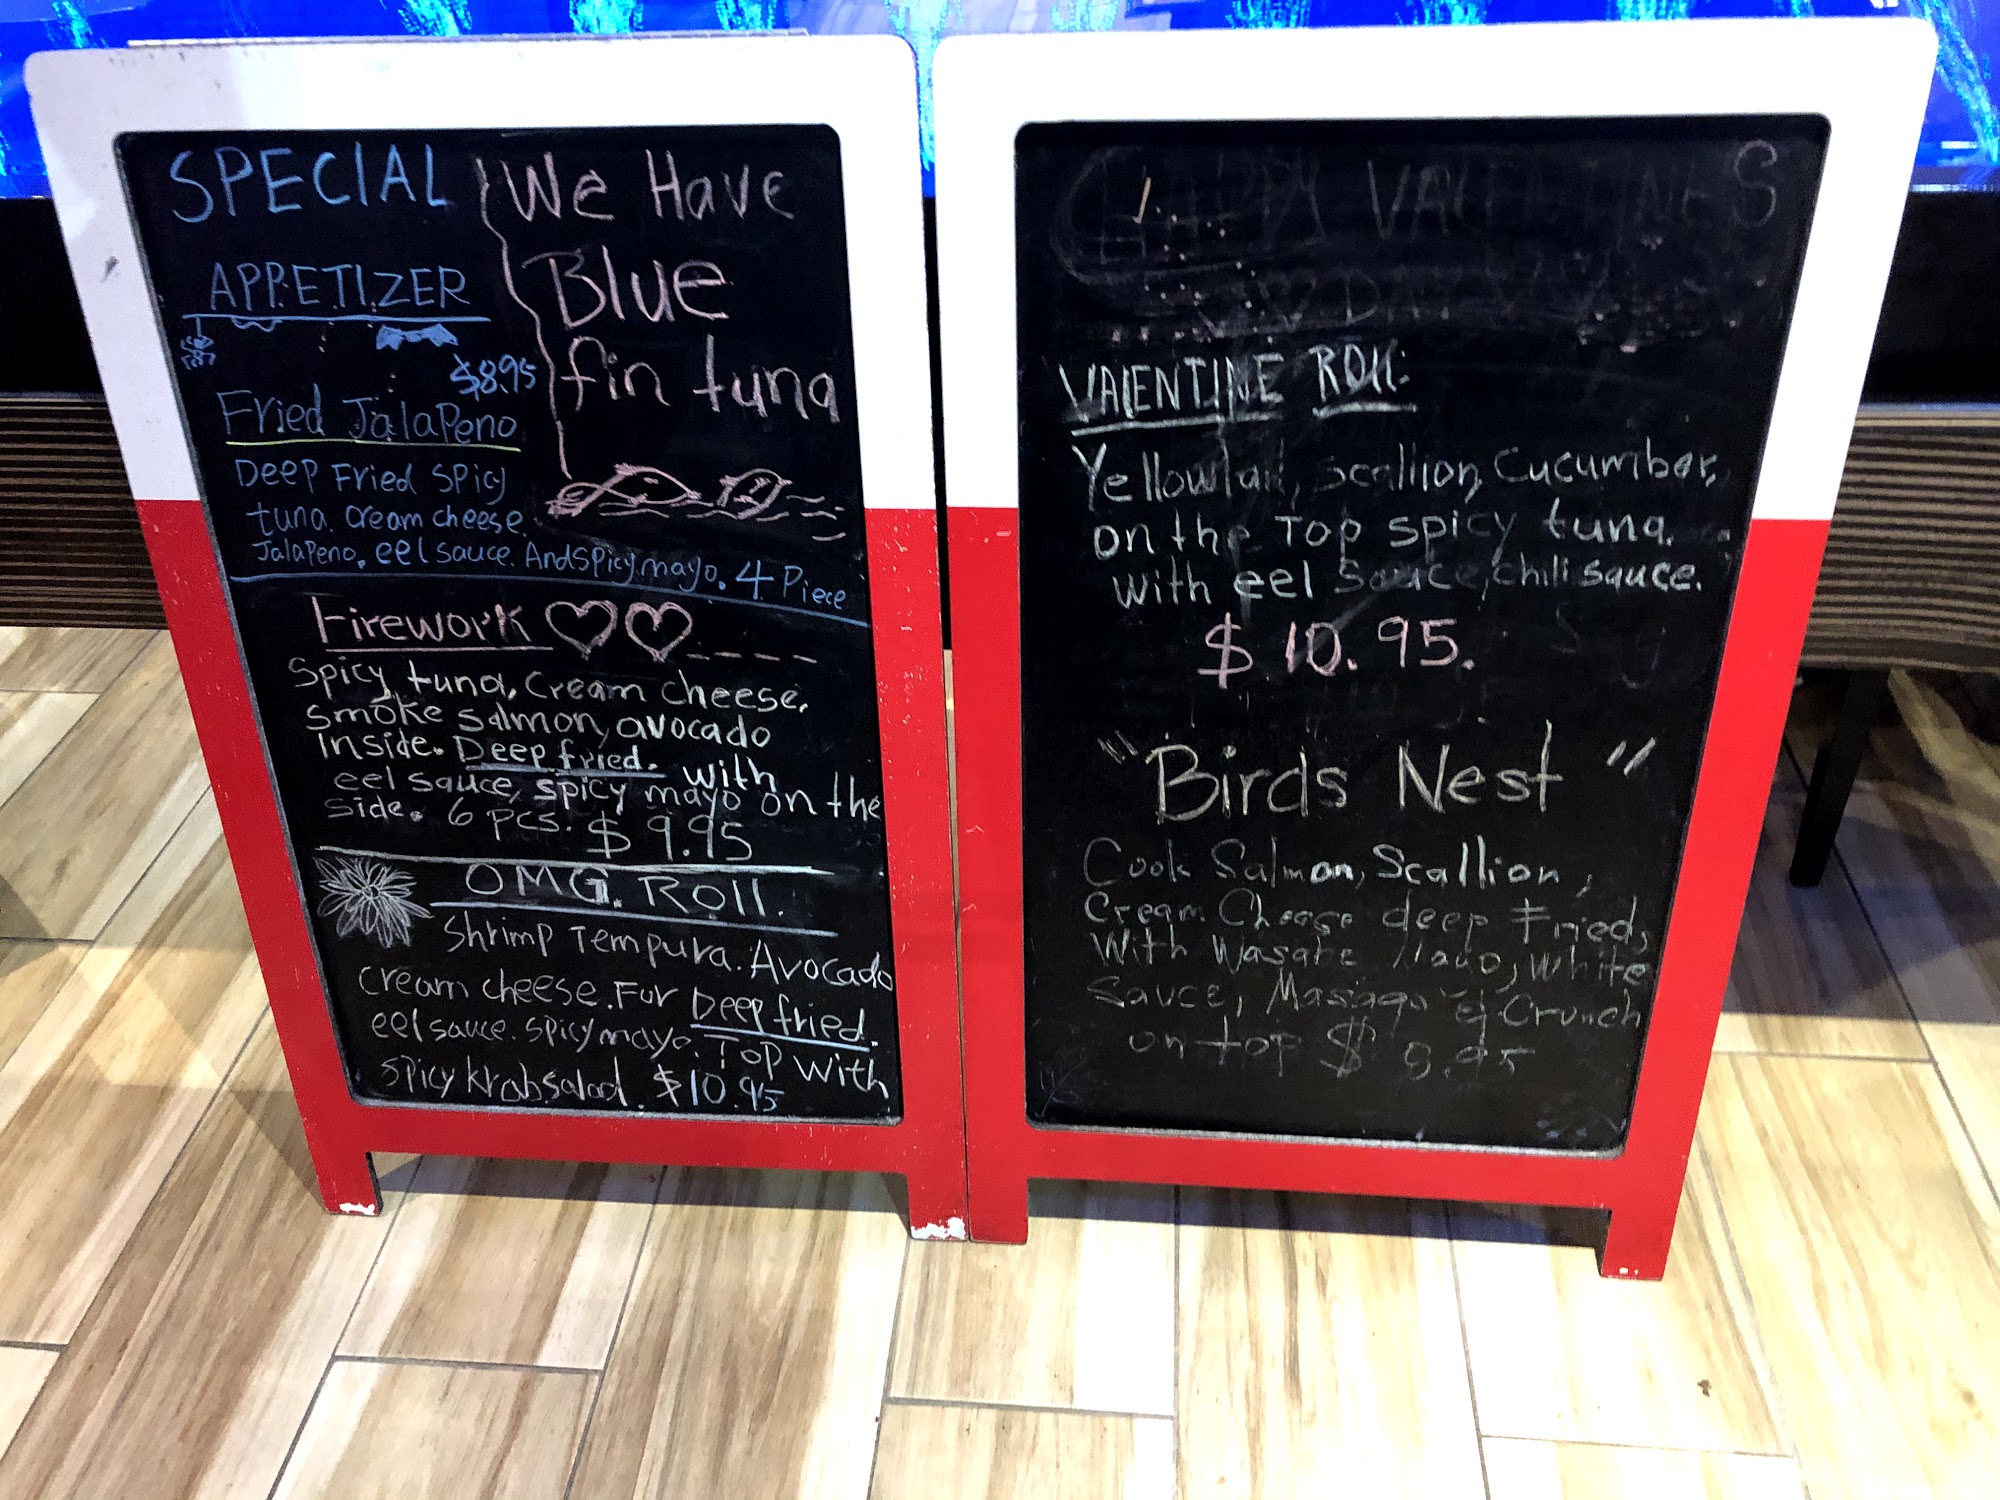 SPECIAL
APPETIZER
$8.95
Fried JalaPeno
Deep Fried Spicy
tuna. cream cheese.
JalaPeno. eel sauce. And spicy mayo. 4 Piece
We Have
Blue
fin tuna
Firework
Spicy tuna, Cream cheese,
smoke salmon, avocado
inside. Deep fried. with
eel sauce, spicy mayo on the
side. 6 pcs. $9.95
OMG. ROll.
Shrimp Tempura. Avocado
cream cheese. For Deep fried.
eel sauce. spicy mayo. Top with
spicy krab salad. $10.95
HAPPY VALENTINES
DAY
VALENTINE ROll:
Yellowtail, scallion, Cucumber,
on the Top spicy tuna.
with eel sauce, chili sauce.
$10.95.
"Birds Nest"
Cook Salmon, Scallion,
Cream Cheese deep Fried,
With Wasabe Mayo, White
Sauce, Masaga & Crunch
on top $ 8.95